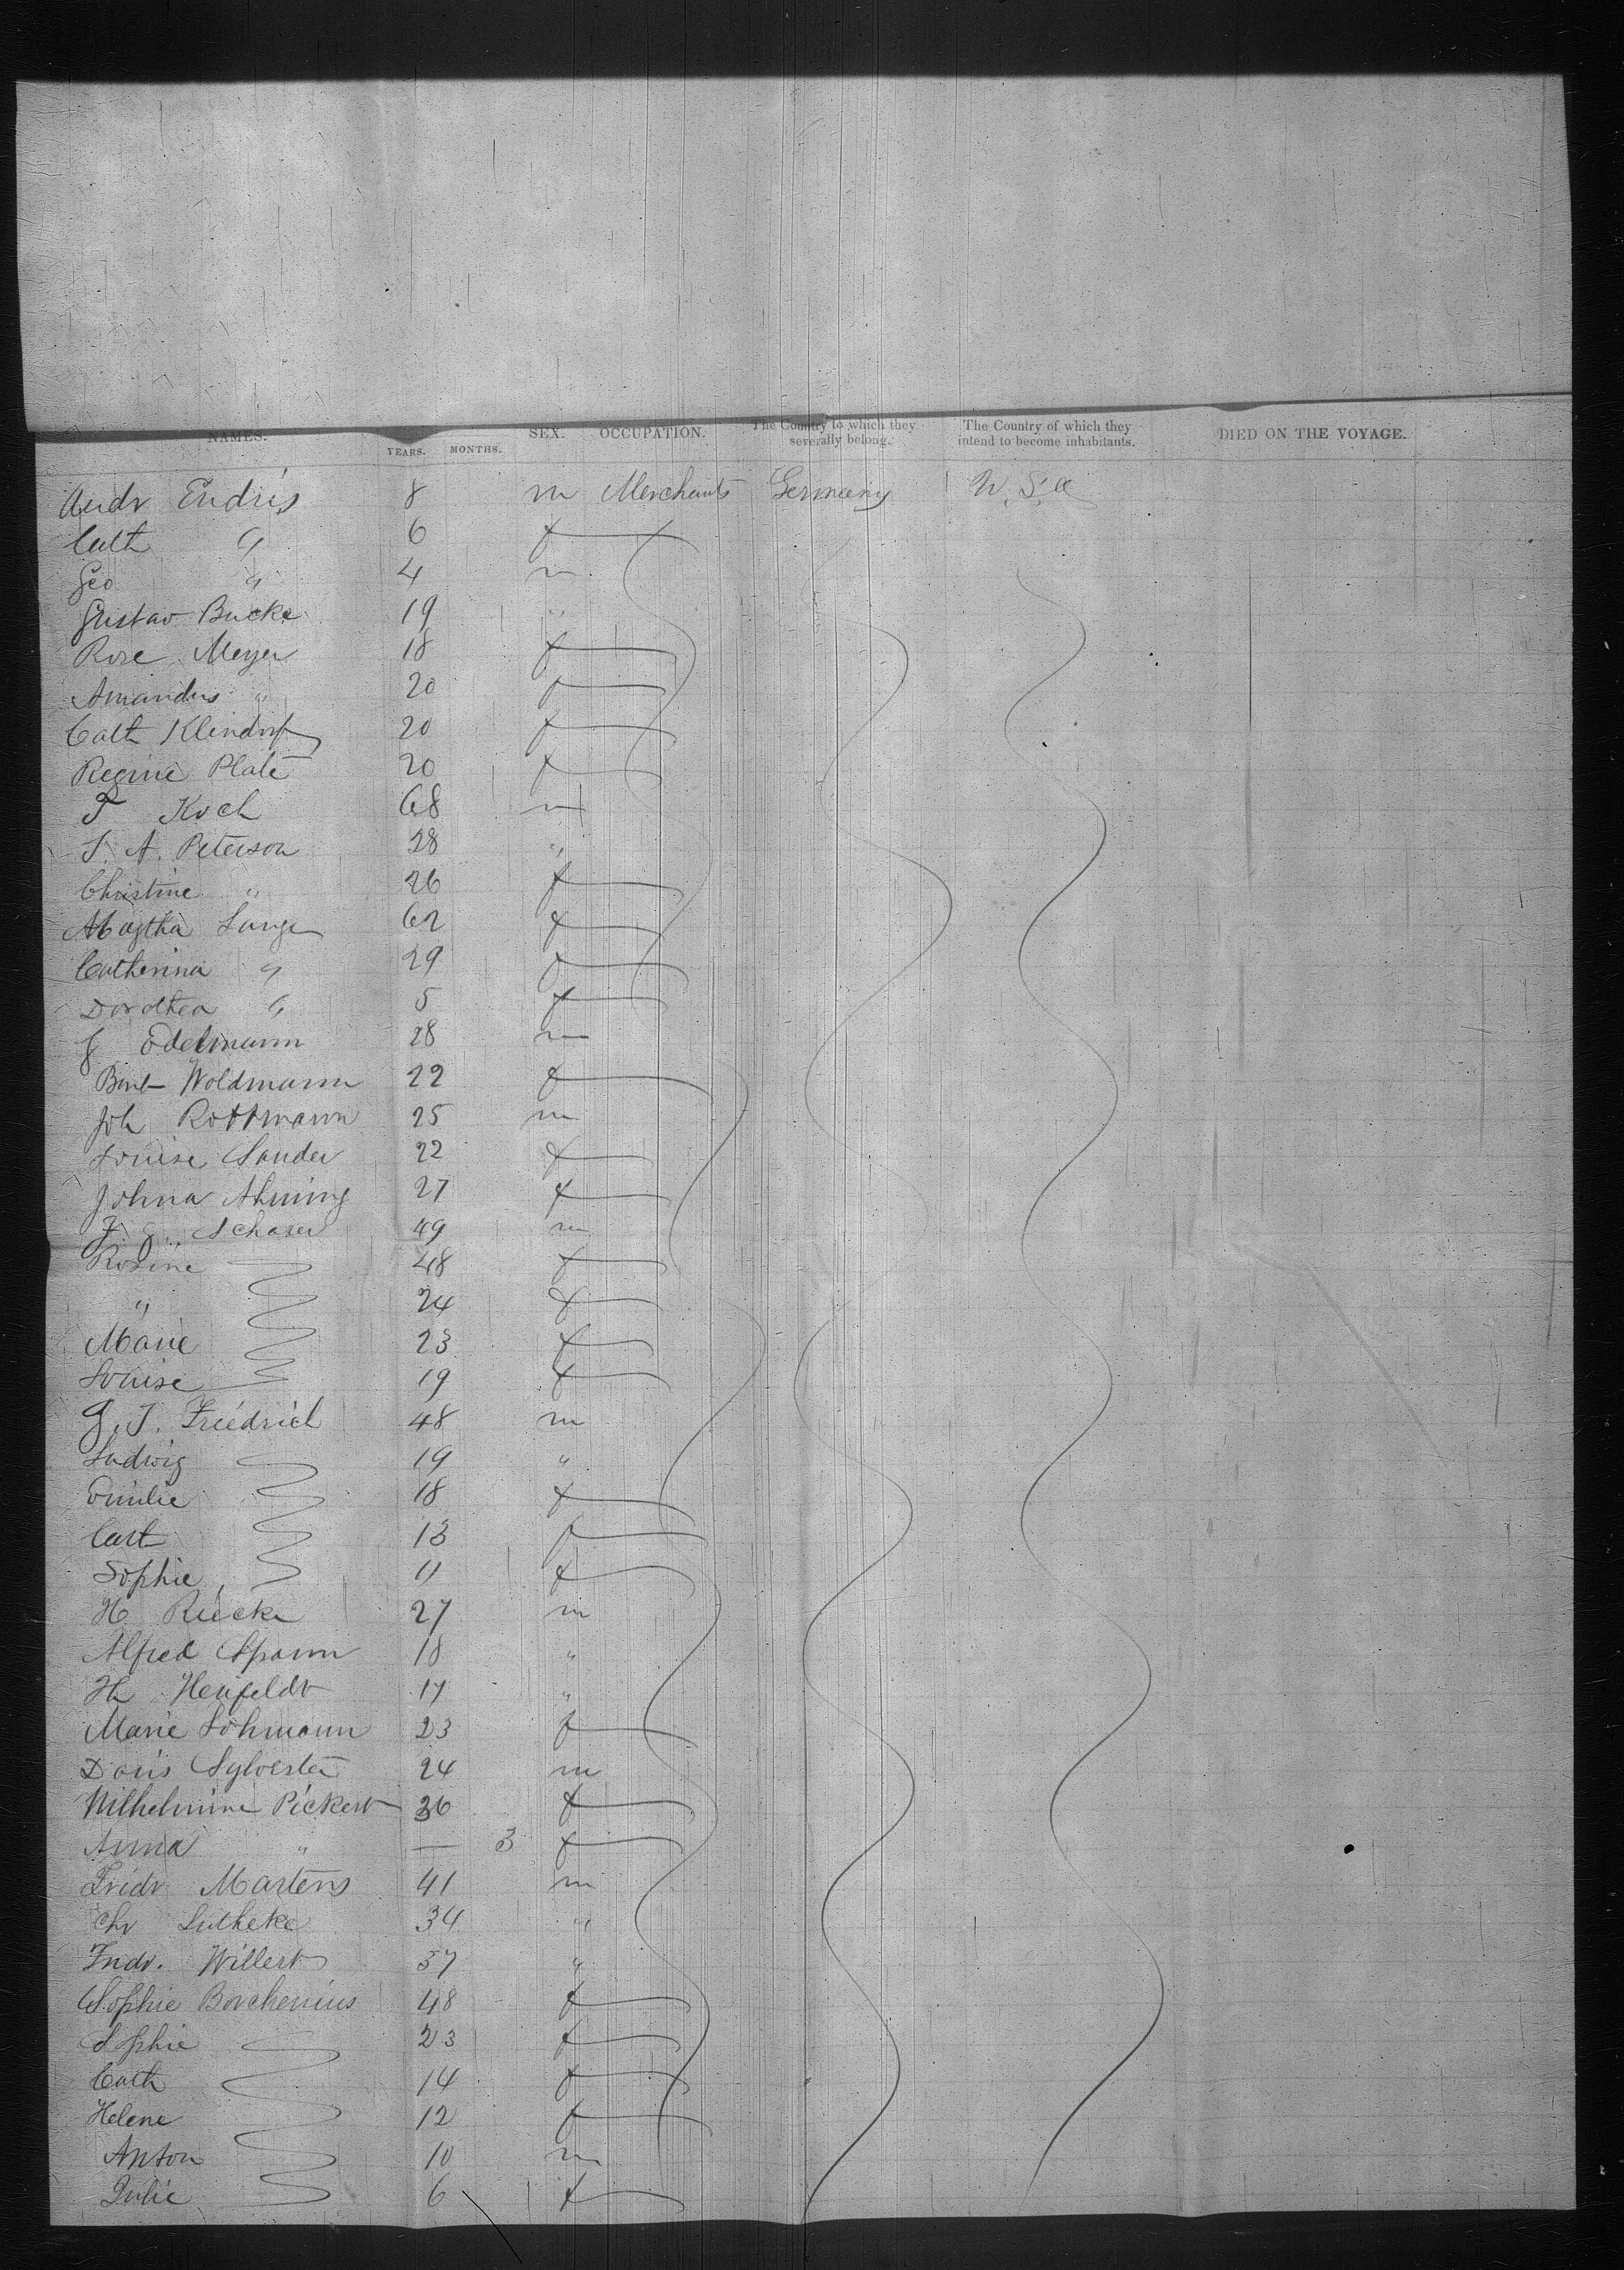 NAMES. YEARS. MONTHS. SEX. OCCUPATION. The Country to which they severally belong. The Country of which they intend to become inhabitants. DIED ON THE VOYAGE.
Andr Endris 8 m Merchants Germany U.S.a
Cath " 6 f
Geo " 4 m
Gustav Bucke 19 "
Rose Meyer 18 f
Amandus " 20 f
Cath Klendorf 20 f
Regine Plate 20 f
F Koch 68 m
J. A. Peterson 28 "
Christine " 26 f
Magtha Lange 62 f
Catherina " 29 f
Dorothea " 5 f
J Edelmann 28 m
Woldmann 22 f
Joh Rottmann 25 m
Louise Sander 22 f
Johna 27 f
J. G. Schaser 49 m
Rosine 48 f
" 24 f
Marie 23 f
Louise 19 f
G. J. Friedrich 48 m
Ludwig 19 "
Emilie 18 f
Carl 13 f
Sophie 11 f
H Riecke 27 m
Alfred Spann 18 "
H Heufeldt 17 "
Marie Lohmann 23 f
Doris Sylvester 24 m
Wilhelmine Pickert 36 f
Anna " — 3 f
Fridr Martens 41 m
Chr Lutheke 34 "
Fridr. Willert 37 "
Sophie Borchenius 48 f
Sophie 23 f
Cath 14 f
Helene 12 f
Anton 10 m
Julie 6 f